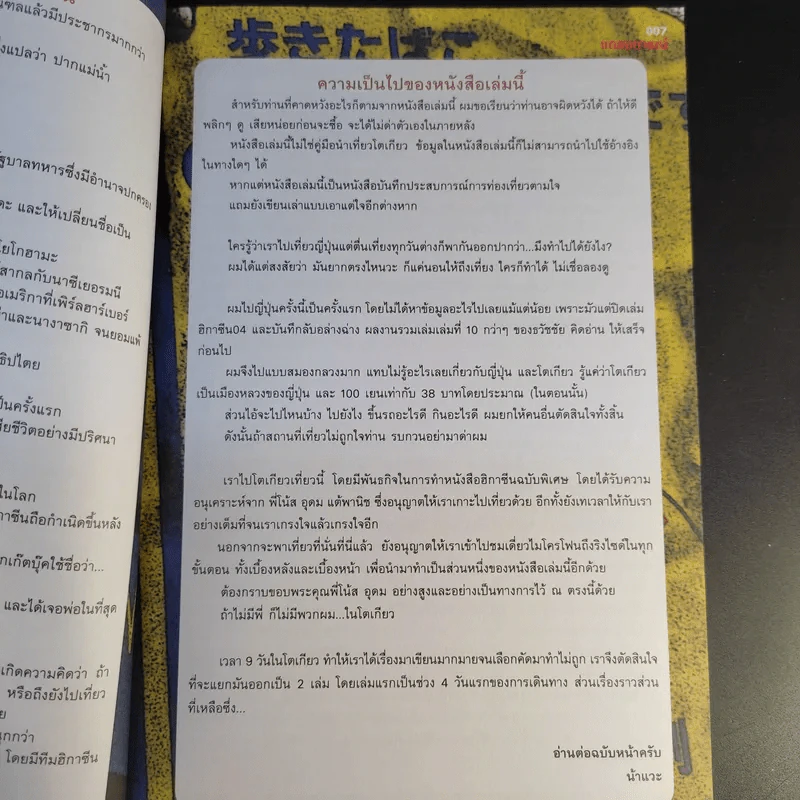 ฑลแล้วมีประชากรมากกว่า
งแปลว่า ปากแม่น้ำ
ฐบาลทหารซึ่งมีอำนาจปกครอง
ดะ และให้เปลี่ยนชื่อเป็น
โยโกฮามะ
สากลกับนาซีเยอรมนี
อเมริกาที่เพิร์ลฮาร์เบอร์
าและนางาซากิ จนยอมแพ้
ธิปไตย
ป็นครั้งแรก
สียชีวิตอย่างมีปริศนา
ในโลก
กาซีนถือกำเนิดขึ้นหลัง
กเก๊ตบุ๊คใช้ชื่อว่า...
และได้เจอพ่อในที่สุด
เกิดความคิดว่า ถ้า
หรือถึงยังไปเที่ยว
ย
นุกกว่า
โดยมีทีมฮิกาซีน
歩きたばこ
007
ความเป็นไปของหนังสือเล่มนี้
สำหรับท่านที่คาดหวังอะไรก็ตามจากหนังสือเล่มนี้ ผมขอเรียนว่าท่านอาจผิดหวังได้ ถ้าให้ดี
พลิกๆ ดู เสียหน่อยก่อนจะซื้อ จะได้ไม่ด่าตัวเองในภายหลัง
หนังสือเล่มนี้ไม่ใช่คู่มือนำเที่ยวโตเกียว ข้อมูลในหนังสือเล่มนี้ก็ไม่สามารถนำไปใช้อ้างอิง
ในทางใดๆ ได้
หากแต่หนังสือเล่มนี้เป็นหนังสือบันทึกประสบการณ์การท่องเที่ยวตามใจ
แถมยังเขียนเล่าแบบเอาแต่ใจอีกต่างหาก
ใครรู้ว่าเราไปเที่ยวญี่ปุ่นแต่ตื่นเที่ยงทุกวันต่างก็พากันออกปากว่า...มึงทำไปได้ยังไง?
ผมได้แต่สงสัยว่า มันยากตรงไหนวะ ก็แค่นอนให้ถึงเที่ยง ใครก็ทำได้ ไม่เชื่อลองดู
ผมไปญี่ปุ่นครั้งนี้เป็นครั้งแรก โดยไม่ได้หาข้อมูลอะไรไปเลยแม้แต่น้อย เพราะมัวแต่ปิดเล่ม
ฮิกาซีน04 และบันทึกลับอล่างฉ่าง ผลงานรวมเล่มเล่มที่ 10 กว่าๆ ของธวัชชัย คิดอ่าน ให้เสร็จ
ก่อนไป
ผมจึงไปแบบสมองกลวงมาก แทบไม่รู้อะไรเลยเกี่ยวกับญี่ปุ่น และโตเกียว รู้แค่ว่าโตเกียว
เป็นเมืองหลวงของญี่ปุ่น และ 100 เยนเท่ากับ 38 บาทโดยประมาณ (ในตอนนั้น)
ส่วนไอ้จะไปไหนบ้าง ไปยังไง ขึ้นรถอะไรดี กินอะไรดี ผมยกให้คนอื่นตัดสินใจทั้งสิ้น
ดังนั้นถ้าสถานที่เที่ยวไม่ถูกใจท่าน รบกวนอย่ามาด่าผม
เราไปโตเกียวเที่ยวนี้ โดยมีพันธกิจในการทำหนังสือฮิกาซีนฉบับพิเศษ โดยได้รับความ
อนุเคราะห์จาก พี่โน้ส อุดม แต้พานิช ซึ่งอนุญาตให้เราเกาะไปเที่ยวด้วย อีกทั้งยังเทเวลาให้กับเรา
อย่างเต็มที่จนเราเกรงใจแล้วเกรงใจอีก
นอกจากจะพาเที่ยวที่นั่นที่นี่แล้ว ยังอนุญาตให้เราเข้าไปชมเดี่ยวไมโครโฟนถึงริงไซด์ในทุก
ขั้นตอน ทั้งเบื้องหลังและเบื้องหน้า เพื่อนำมาทำเป็นส่วนหนึ่งของหนังสือเล่มนี้อีกด้วย
ต้องกราบขอบพระคุณพี่โน้ส อุดม อย่างสูงและอย่างเป็นทางการไว้ ณ ตรงนี้ด้วย
ถ้าไม่มีพี่ ก็ไม่มีพวกผม...ในโตเกียว
เวลา 9 วันในโตเกียว ทำให้เราได้เรื่องมาเขียนมากมายจนเลือกคัดมาทำไม่ถูก เราจึงตัดสินใจ
ที่จะแยกมันออกเป็น 2 เล่ม โดยเล่มแรกเป็นช่วง 4 วันแรกของการเดินทาง ส่วนเรื่องราวส่วน
ที่เหลือซึ่ง...
อ่านต่อฉบับหน้าครับ
น้าแวะ